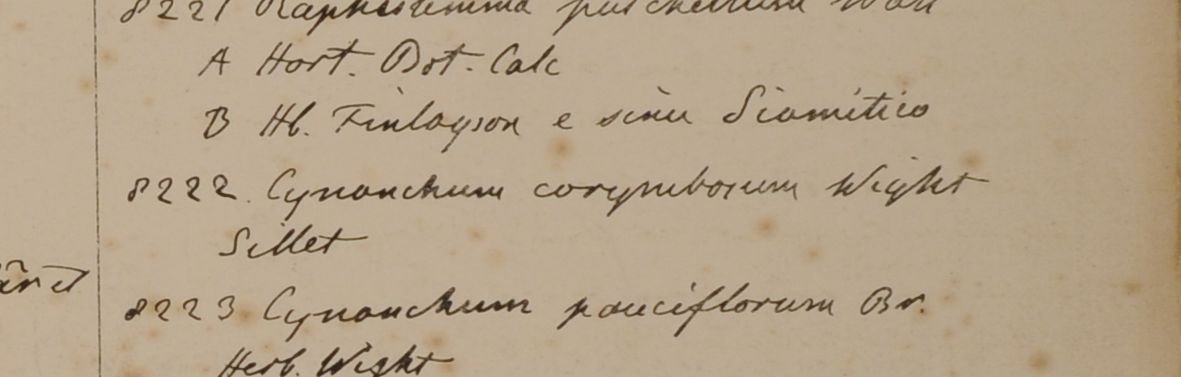 8221 Raphistemma pulchellum Wall
A Hort. Bot. Calc
B Hb. Finlayson e sinu Siamitico
8222. Cynanchum corymbosum Wight
Sillet
8223 Cynanchum pauciflorum Br.
Herb. Wight